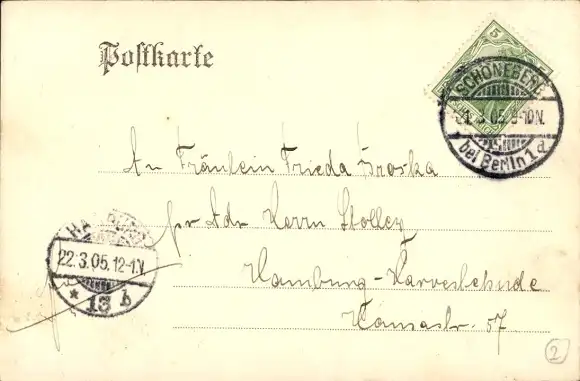 Postkarte
5
SCHÖNEBERG
21.3.05.9-10N.
bei Berlin 1 d
An Fräulein Frieda Broska
pr Adr Herrn Stolley
HAMBURG
22.3.05.12-1.V
* 13 b
Hamburg-Harvestehude
Hansastr. 57
2